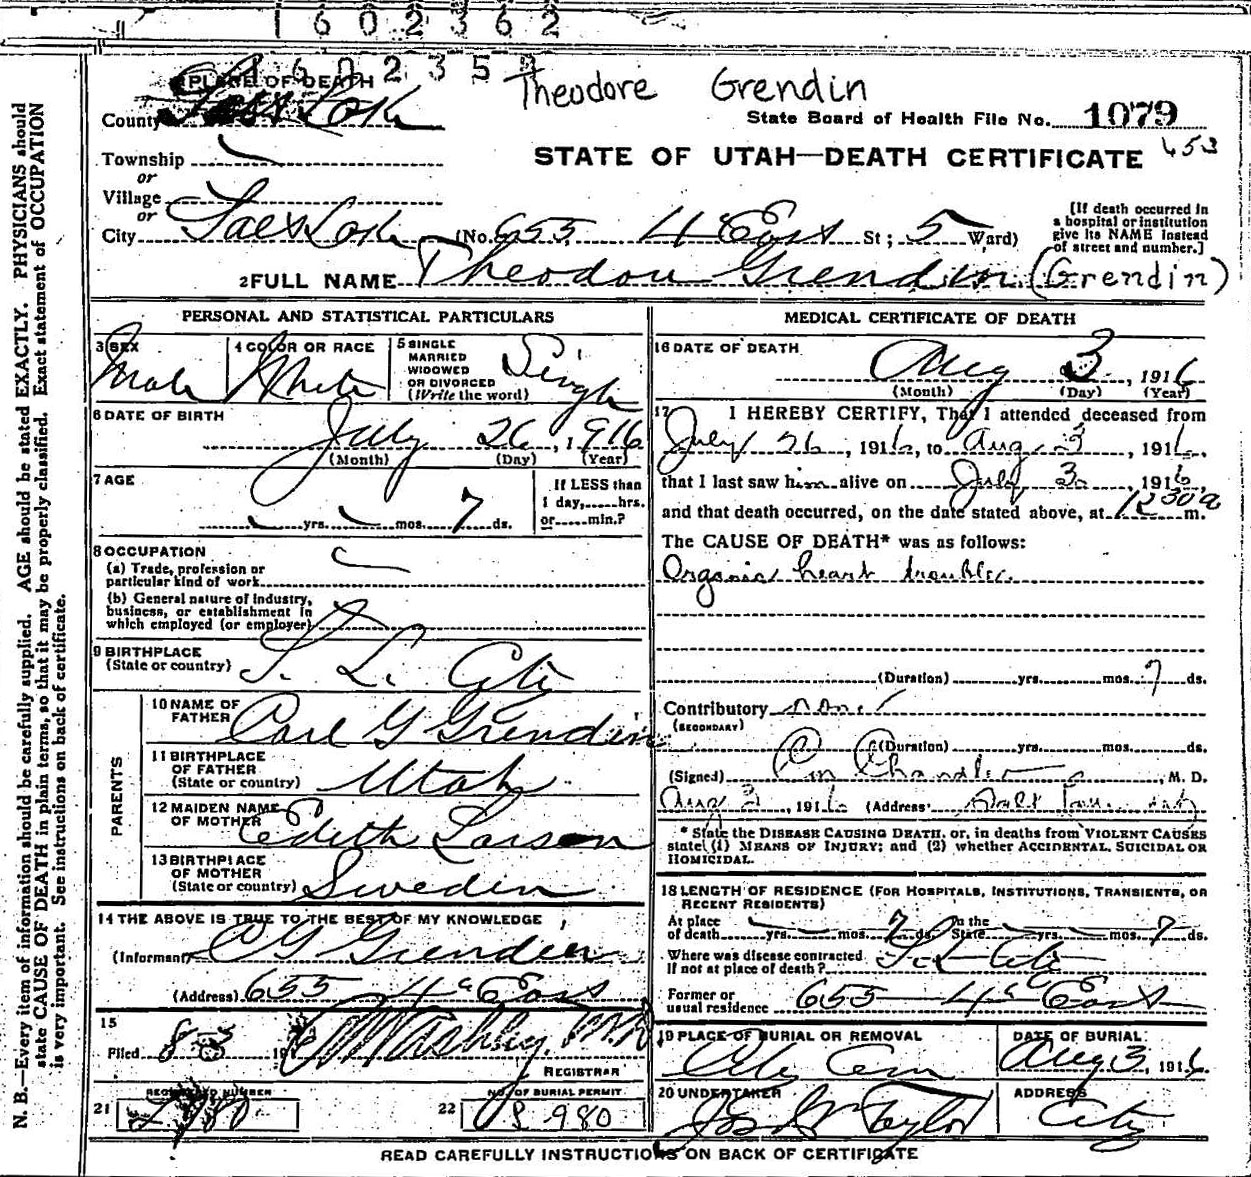 1602362
160235
Theodore Grendin
1 PLACE OF DEATH
County Salt Lake
State Board of Health File No. 1079
Township
or
STATE OF UTAH—DEATH CERTIFICATE 453
Village
or
City Salt Lake (No. 653 4" East St; 5 Ward)
[If death occurred in
a hospital or institution
give its NAME instead
of street and number.]
2 FULL NAME Theodore Grendin (Grendin)
PERSONAL AND STATISTICAL PARTICULARS
3 SEX
Male
4 COLOR OR RACE
White
5 SINGLE
MARRIED
WIDOWED
OR DIVORCED
(Write the word)
Single
6 DATE OF BIRTH
July 26, 1916
(Month) (Day) (Year)
7 AGE
yrs. mos. 7 ds.
If LESS than
1 day,......hrs.
or......min.?
8 OCCUPATION
(a) Trade, profession or
particular kind of work
(b) General nature of industry,
business, or establishment in
which employed (or employer)
9 BIRTHPLACE
(State or country) S. L. City
PARENTS
10 NAME OF
FATHER Carl G Grendin
11 BIRTHPLACE
OF FATHER
(State or country) Utah
12 MAIDEN NAME
OF MOTHER Edith Larson
13 BIRTHPLACE
OF MOTHER
(State or country) Sweden
14 THE ABOVE IS TRUE TO THE BEST OF MY KNOWLEDGE
(Informant) C G Grendin
(Address) 655 4" East
15
Filed 8-3 191 Ashley, M.D.
REGISTRAR
21 REGISTERED NUMBER
22 NO. OF BURIAL PERMIT
S 980
MEDICAL CERTIFICATE OF DEATH
16 DATE OF DEATH
Aug 3, 1916
(Month) (Day) (Year)
17 I HEREBY CERTIFY, That I attended deceased from
July 26, 1916, to Aug 3, 1916,
that I last saw him alive on July 3, 1916,
and that death occurred, on the date stated above, at 12 30 a m.
The CAUSE OF DEATH* was as follows:
Organic heart trouble.
(Duration) yrs. mos. 7 ds.
Contributory none
(SECONDARY)
(Duration) yrs. mos. ds.
(Signed) Chandler, M. D.
Aug 3, 1916 (Address) Salt
* State the DISEASE CAUSING DEATH, or, in deaths from VIOLENT CAUSES
state (1) MEANS OF INJURY; and (2) whether ACCIDENTAL, SUICIDAL OR
HOMICIDAL.
18 LENGTH OF RESIDENCE (FOR HOSPITALS, INSTITUTIONS, TRANSIENTS, OR
RECENT RESIDENTS)
At place
of death yrs. mos. 7 ds. In the
State yrs. mos. 7 ds.
Where was disease contracted
if not at place of death? S. L. City
Former or
usual residence 655 4" East
19 PLACE OF BURIAL OR REMOVAL
City Cem
DATE OF BURIAL
Aug 3, 1916.
20 UNDERTAKER
Jos Wm Taylor
ADDRESS
City
READ CAREFULLY INSTRUCTIONS ON BACK OF CERTIFICATE
N. B.—Every item of information should be carefully supplied. AGE should be stated EXACTLY. PHYSICIANS should
state CAUSE OF DEATH in plain terms, so that it may be properly classified. Exact statement of OCCUPATION
is very important. See instructions on back of certificate.